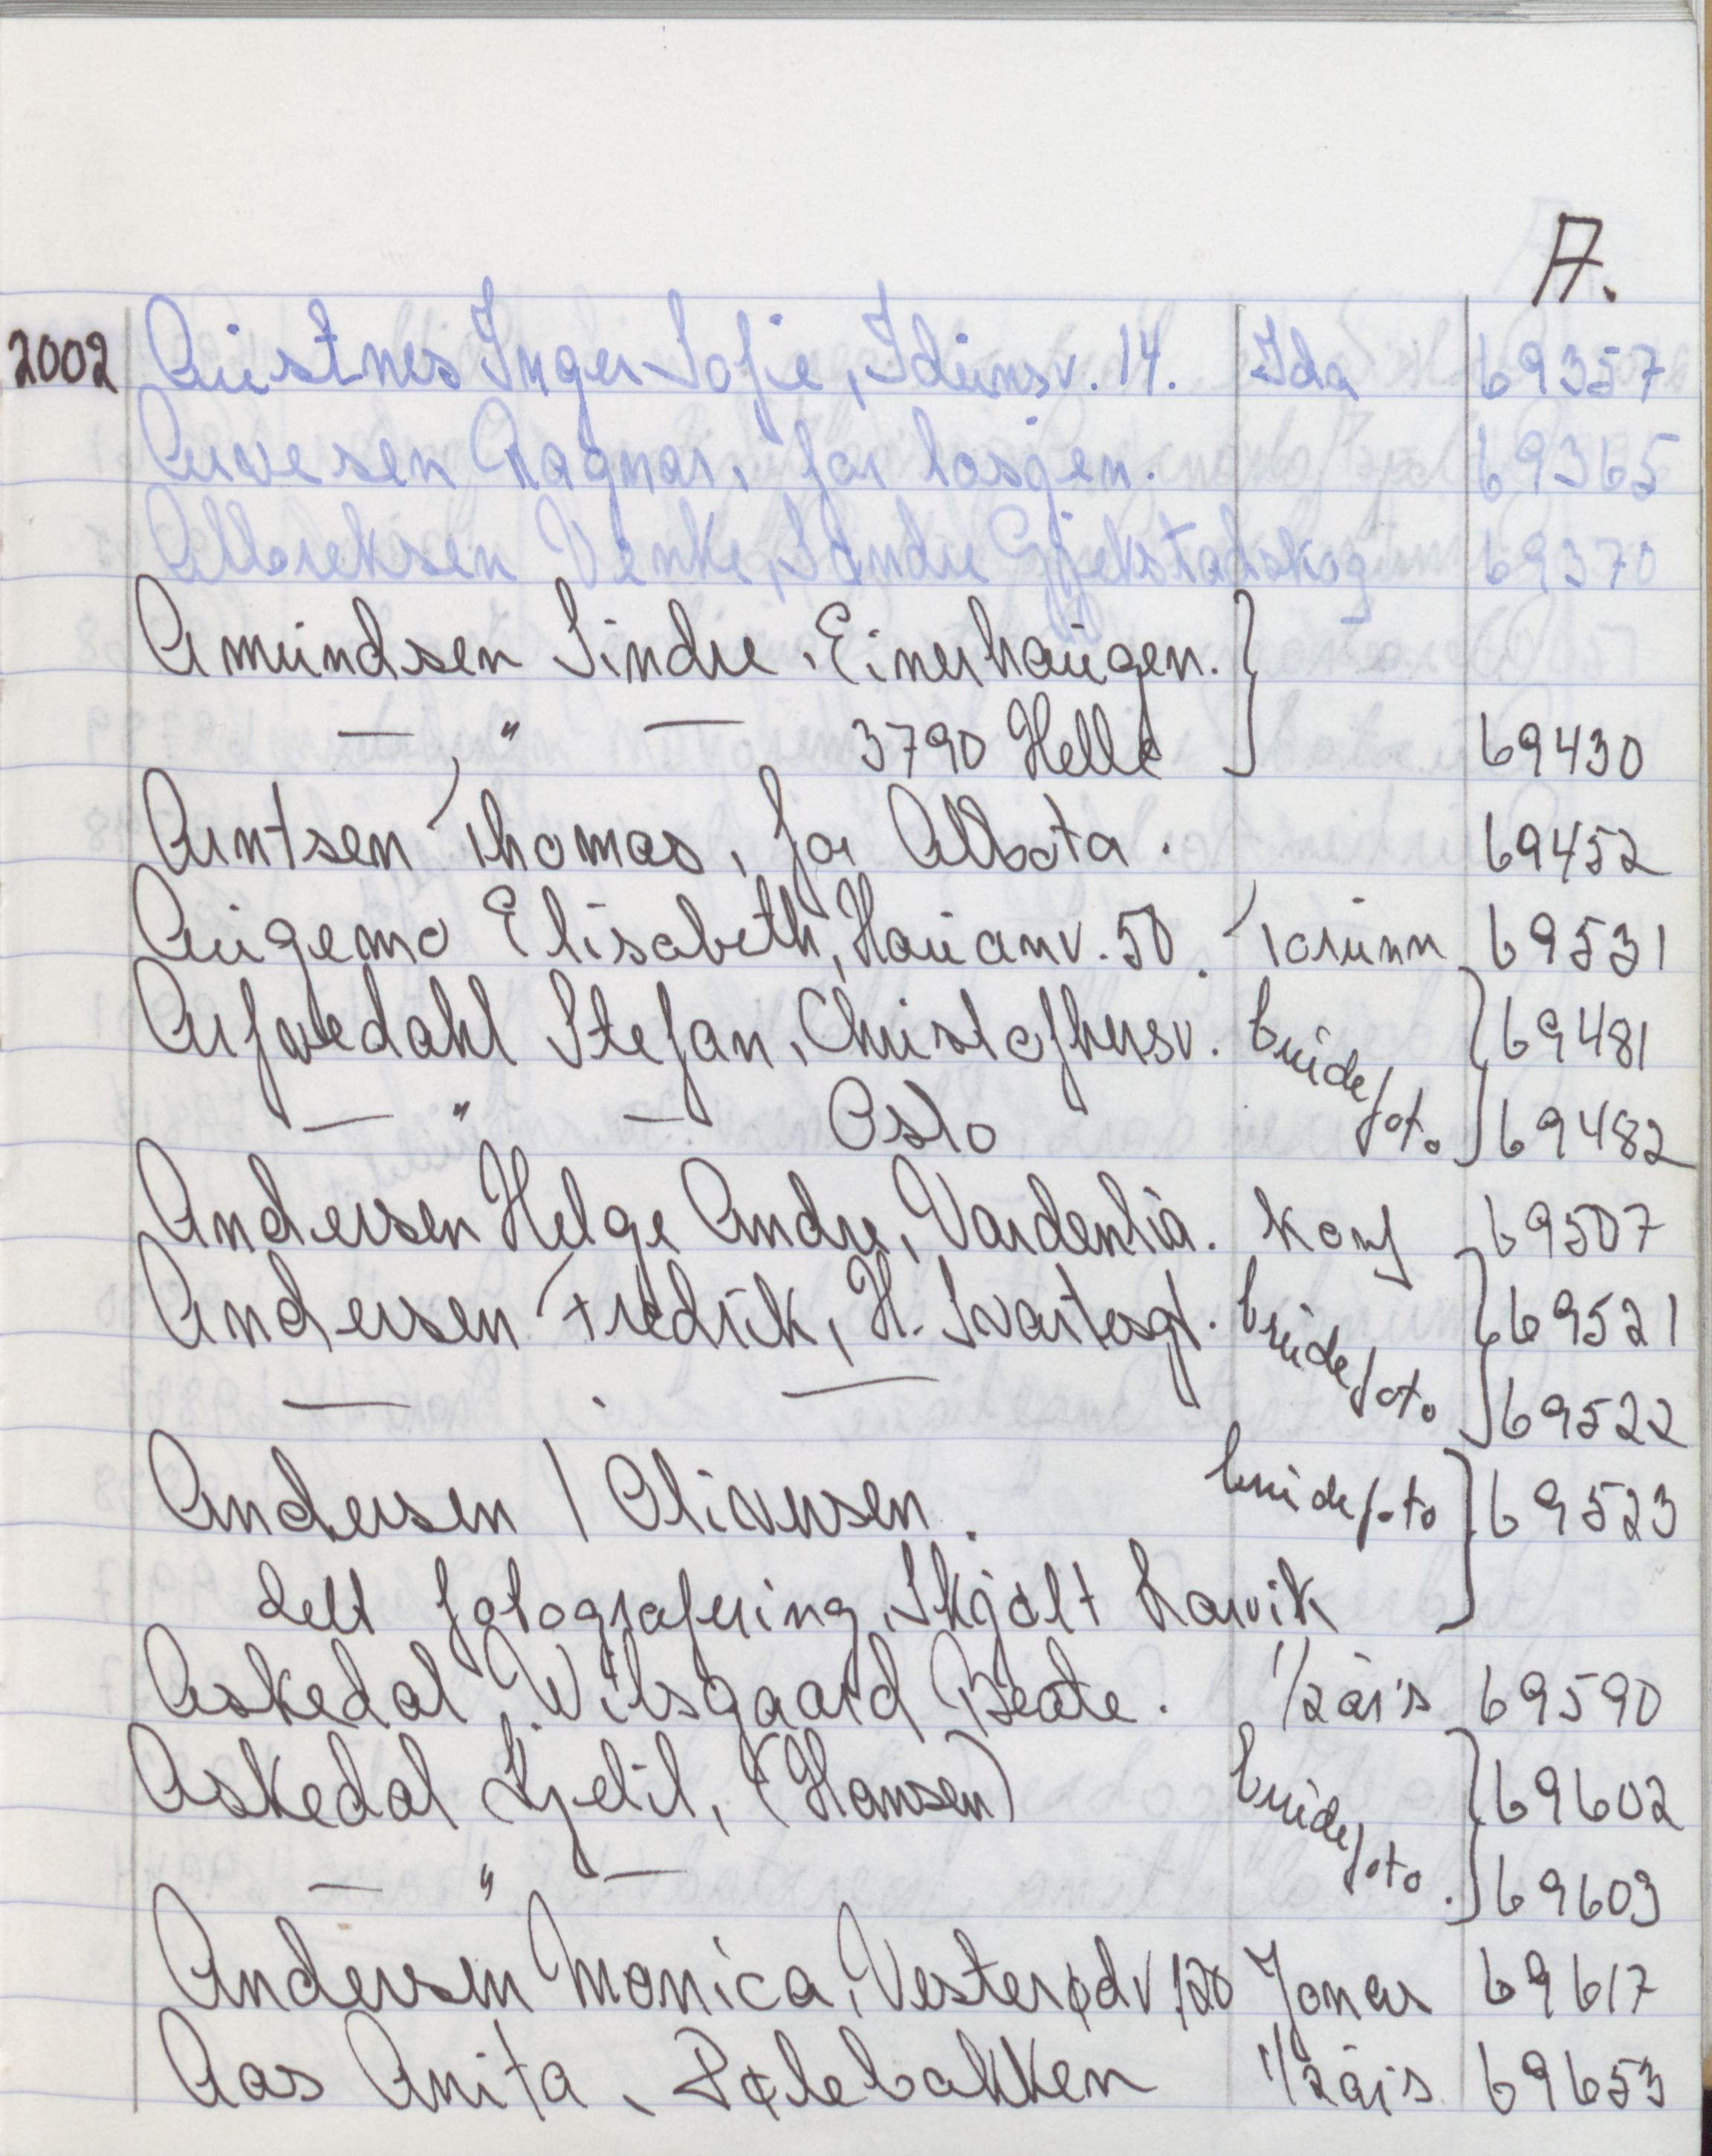 A.
2002 Austnes Inger Sofie, Idunsv. 14. Ida 69357
Arvesen Ragnar, for losjen. 69365
Albreksen Venke, Søndre Gjekstadskog 69370
Amundsen Sindre, Einerhaugen.
— " — 3790 Helle 69430
Arntsen Thomas, for Abbota. 69452
Augemo Elisabeth, Hauanv. 50. Torunn 69531
Arfwedahl Stefan, Christophersv. brudefoto 69481
— " — Oslo 69482
Andersen Helge Andre, Vardenlia. konf 69507
Andersen Fredrik, H. Svartosgt. brudefoto 69521
— . — 69522
Andersen / Oliversen. brudefoto 69523
delt fotografering, Skjølt Larvik
Askedal, Wilsgaard Beate. 1/2 års 69590
Askedal Kjetil, (Hansen) brudefoto. 69602
— " — 69603
Andersen Monica, Vesterødv 120 Jonas 69617
Aas Anita, Pølebakken 1/2 års 69653